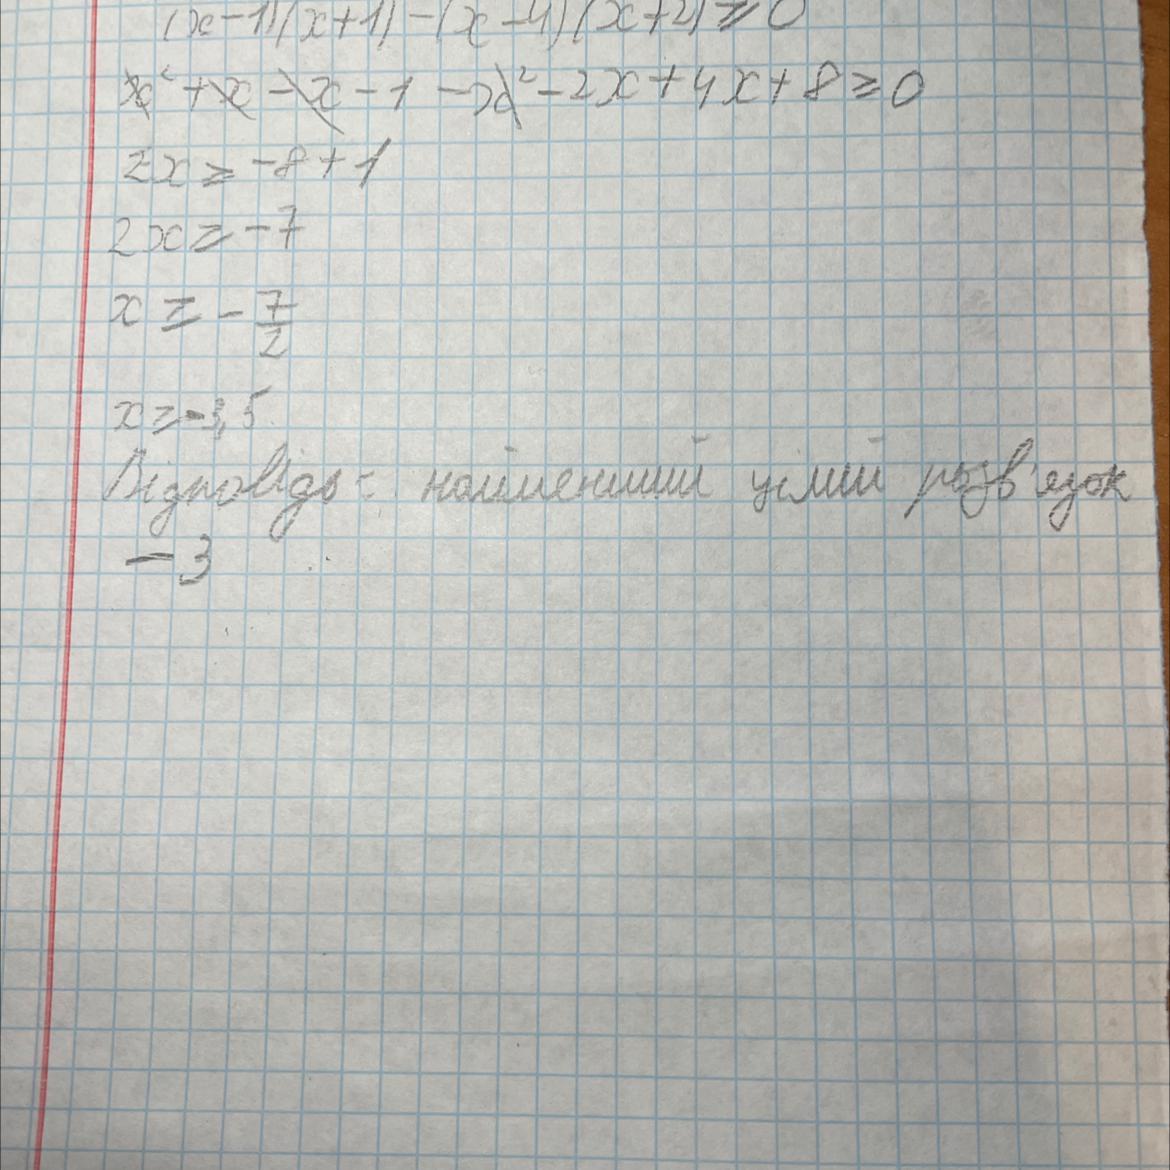 (x-1)(x+1)-(x-4)(x+2)≥0
x²+x-x-1-x²-2x+4x+8≥0
2x≥-8+1
2x≥-7
x≥-7/2
x≥-3,5
Відповідь: найменший цілий розв'язок
-3